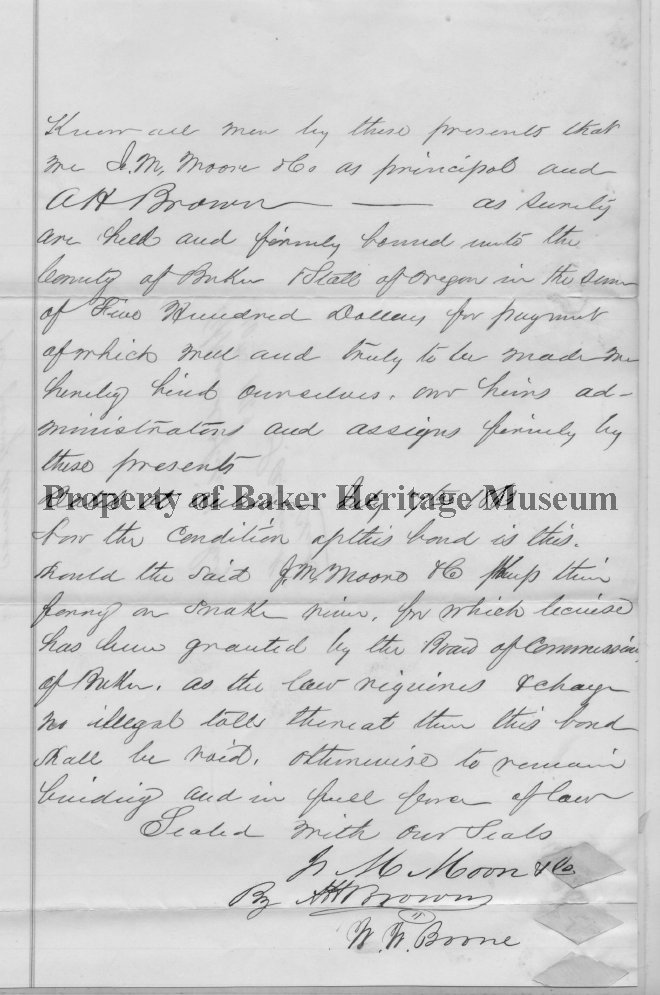 Know all men by these presents that
we J. M. Moore & Co as principal and
A H Brown — — as surety
are held and firmly bound unto the
County of Baker & State of Oregon in the sum
of Five Hundred Dollars for payment
of which well and truly to be made we
hereby bind ourselves, our heirs ad-
ministrators and assigns firmly by
these presents
Property of Baker Heritage Museum
Now the condition of this bond is this.
Should the said J. M. Moore & C keep their
ferry on Snake river, for which license
has been granted by the Board of Commission
of Baker, as the law requires & charge
no illegal tolls thereat then this bond
shall be void, otherwise to remain
binding and in full force of law
Sealed with our Seals
J. M Moore & Co
By A H Brown
W. W. Boone